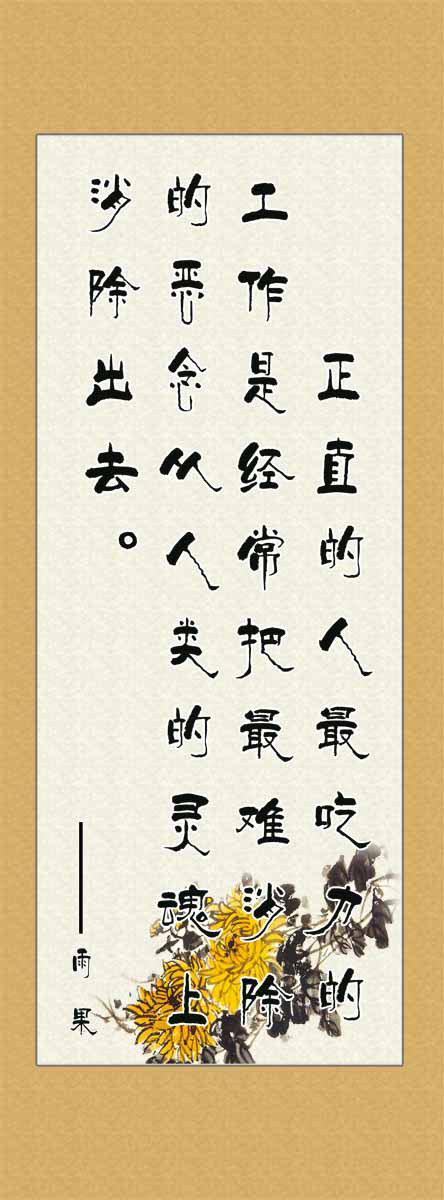 正直的人最吃力的
工作是经常把最难沙除
的恶念从人类的灵魂上
沙除出去。
——雨果